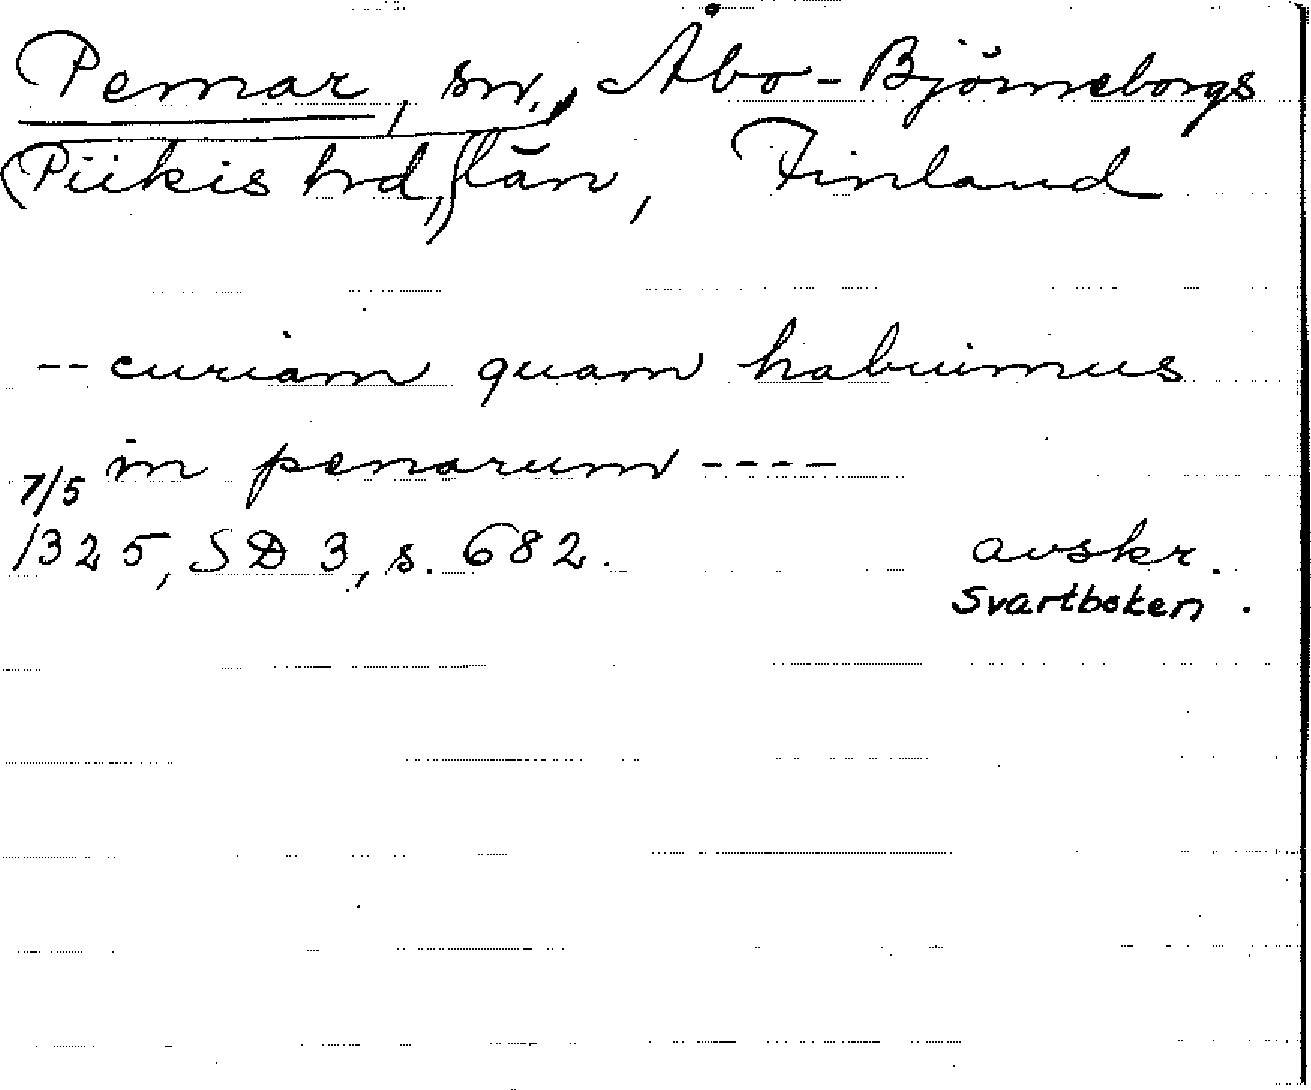 Pemar, sn., Åbo-Björneborgs
(Piikis hrd,) län, Finland
-- curiam quam habuimus
in penarum ----
7/5
1325, SD 3, s. 682. avskr.
Svartboken.